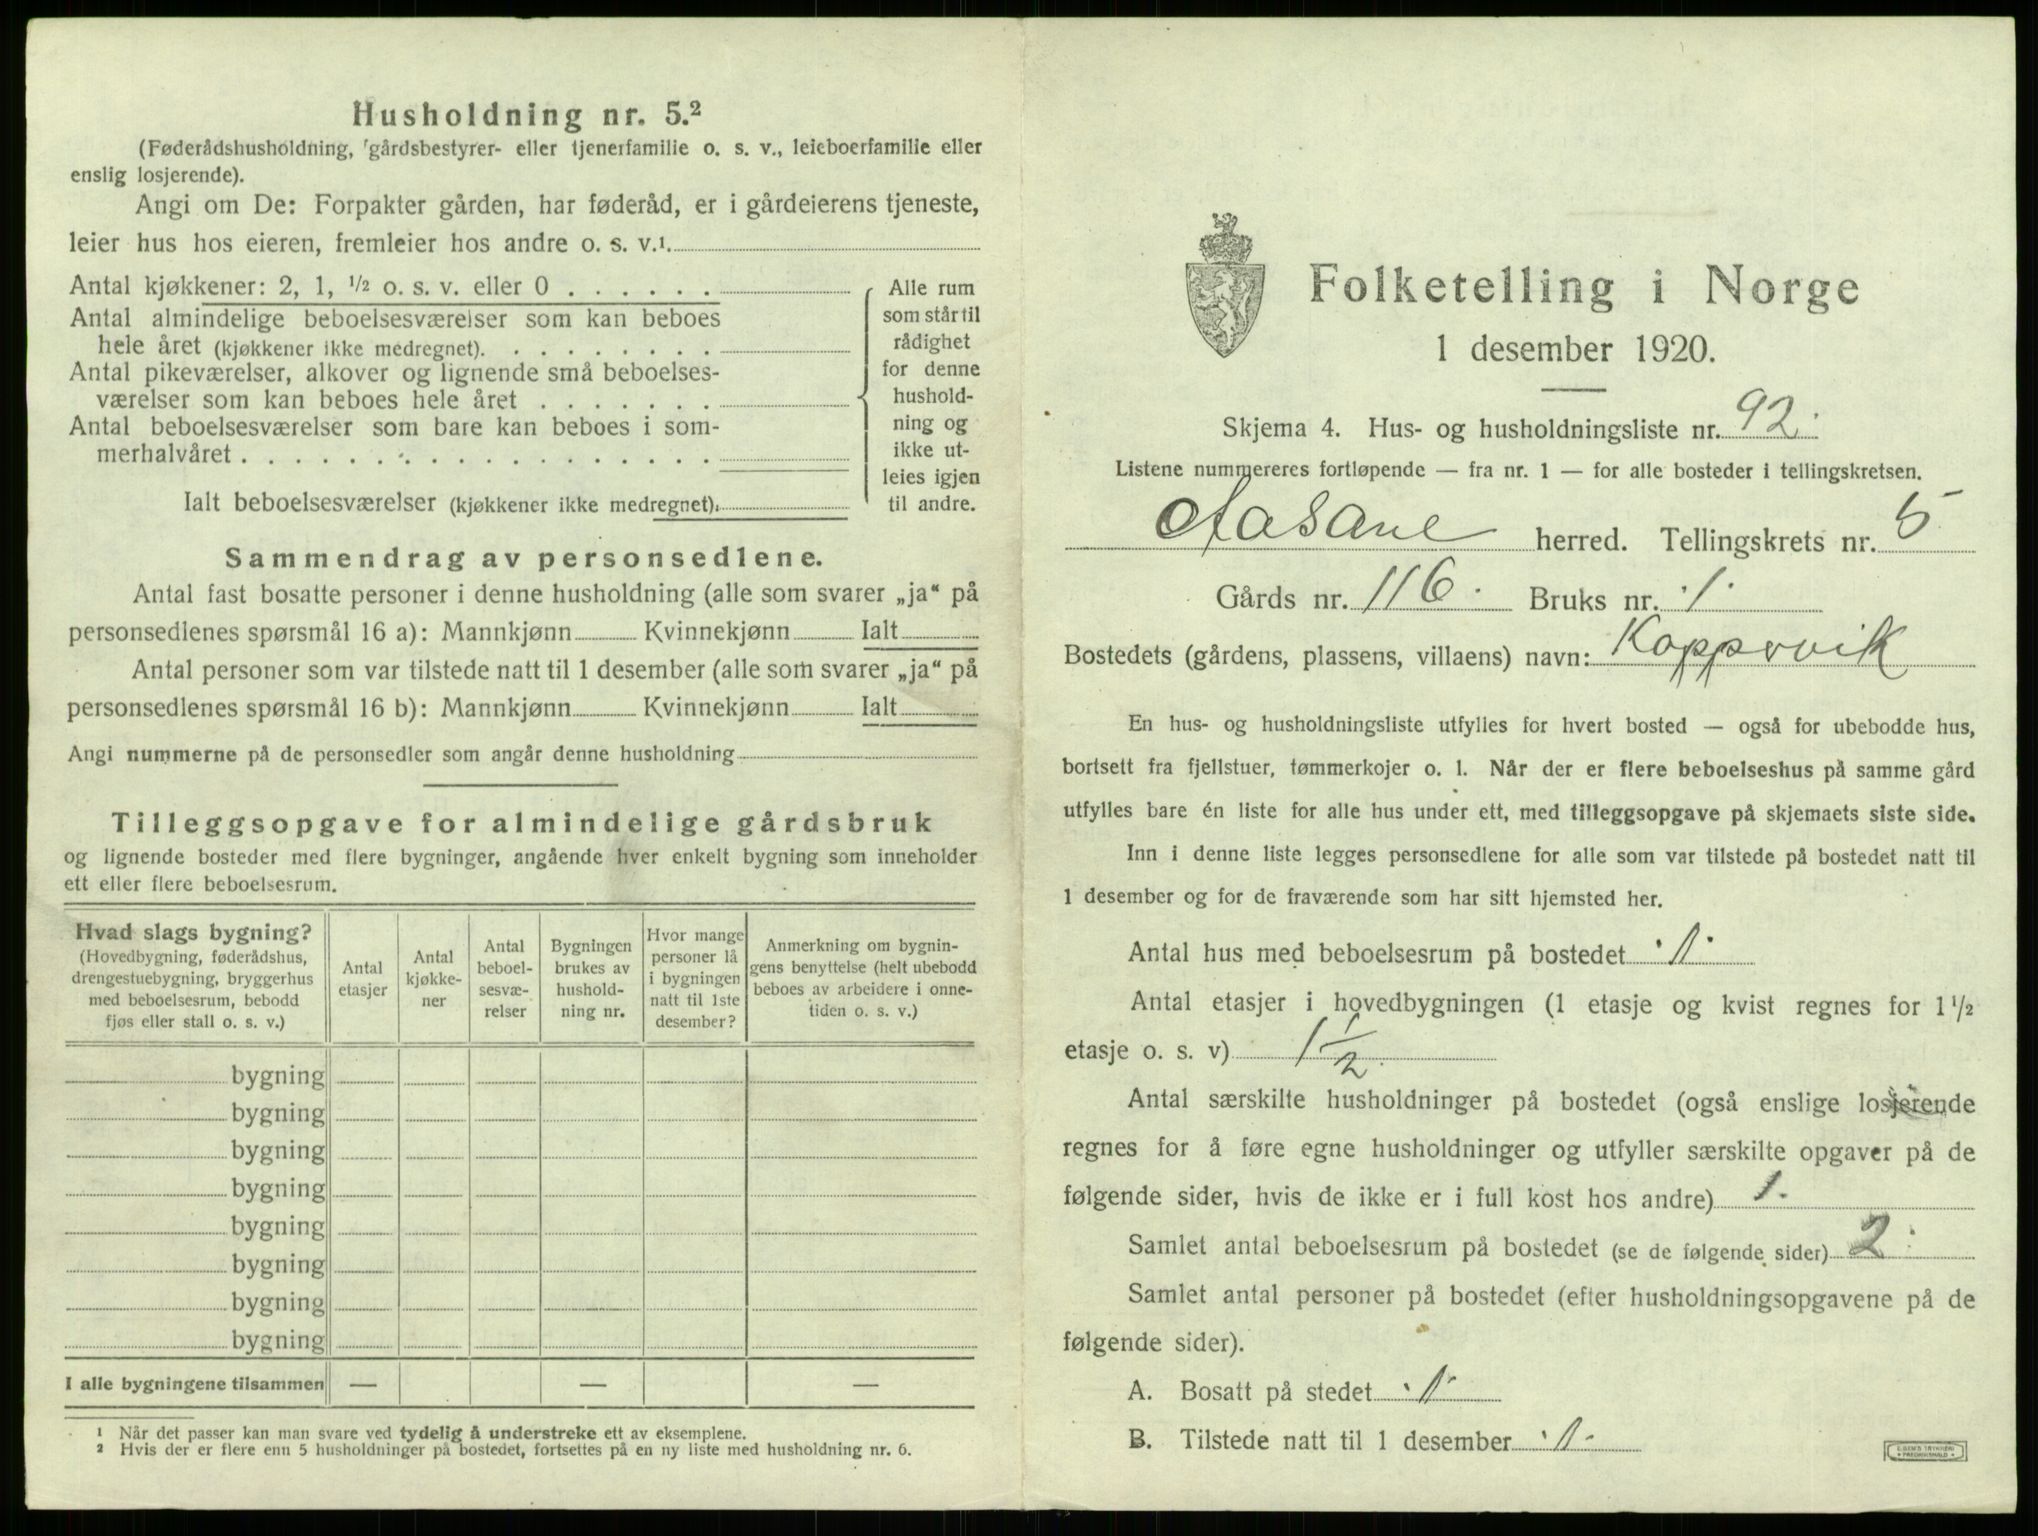 Husholdning nr. 5.²
(Føderådshusholdning, gårdsbestyrer- eller tjenerfamilie o. s. v., leieboerfamilie eller
enslig losjerende).
Angi om De: Forpakter gården, har føderåd, er i gårdeierens tjeneste,
leier hus hos eieren, fremleier hos andre o. s. v.¹
Antal kjøkkener: 2, 1, ½ o. s. v. eller 0
Antal almindelige beboelsesværelser som kan beboes
hele året (kjøkkener ikke medregnet).
Antal pikeværelser, alkover og lignende små beboelses-
værelser som kan beboes hele året
Antal beboelsesværelser som bare kan beboes i som-
merhalvåret
Ialt beboelsesværelser (kjøkkener ikke medregnet)
Alle rum
som står til
rådighet
for denne
hushold-
ning og
ikke ut-
leies igjen
til andre.
Sammendrag av personsedlene.
Antal fast bosatte personer i denne husholdning (alle som svarer „ja“ på
personsedlenes spørsmål 16 a): Mannkjønn Kvinnekjønn Ialt
Antal personer som var tilstede natt til 1 desember (alle som svarer „ja“ på
personsedlenes spørsmål 16 b): Mannkjønn Kvinnekjønn Ialt
Angi nummerne på de personsedler som angår denne husholdning
Tilleggsopgave for almindelige gårdsbruk
og lignende bosteder med flere bygninger, angående hver enkelt bygning som inneholder
ett eller flere beboelsesrum.
Hvad slags bygning?
(Hovedbygning, føderådshus,
drengestuebygning, bryggerhus
med beboelsesrum, bebodd
fjøs eller stall o. s. v.)
Antal
etasjer
Antal
kjøkke-
ner
Antal
beboel-
sesvæ-
relser
Bygningen
brukes av
hushold-
ning nr.
Hvor mange
personer lå
i bygningen
natt til 1ste
desember?
Anmerkning om bygnin-
gens benyttelse (helt ubebodd
beboes av arbeidere i onne-
tiden o. s. v.)
bygning
bygning
bygning
bygning
bygning
bygning
bygning
bygning
I alle bygningene tilsammen — — —
¹ Når det passer kan man svare ved tydelig å understreke ett av eksemplene.
² Hvis der er flere enn 5 husholdninger på bostedet, fortsettes på en ny liste med husholdning nr. 6.
Folketelling i Norge
1 desember 1920.
Skjema 4. Hus- og husholdningsliste nr. 92.
Listene nummereres fortløpende — fra nr. 1 — for alle bosteder i tellingskretsen.
Aasane herred. Tellingskrets nr. 5
Gårds nr. 116. Bruks nr. 1.
Bostedets (gårdens, plassens, villaens) navn: Koppervik
En hus- og husholdningsliste utfylles for hvert bosted — også for ubebodde hus,
bortsett fra fjellstuer, tømmerkojer o. l. Når der er flere beboelseshus på samme gård
utfylles bare én liste for alle hus under ett, med tilleggsopgave på skjemaets siste side.
Inn i denne liste legges personsedlene for alle som var tilstede på bostedet natt til
1 desember og for de fraværende som har sitt hjemsted her.
Antal hus med beboelsesrum på bostedet 1.
Antal etasjer i hovedbygningen (1 etasje og kvist regnes for 1½
etasje o. s. v) 1½.
Antal særskilte husholdninger på bostedet (også enslige losjerende
regnes for å føre egne husholdninger og utfyller særskilte opgaver på de
følgende sider, hvis de ikke er i full kost hos andre) 1.
Samlet antal beboelsesrum på bostedet (se de følgende sider) 2.
Samlet antal personer på bostedet (efter husholdningsopgavene på de
følgende sider).
A. Bosatt på stedet 1.
B. Tilstede natt til 1 desember 1.